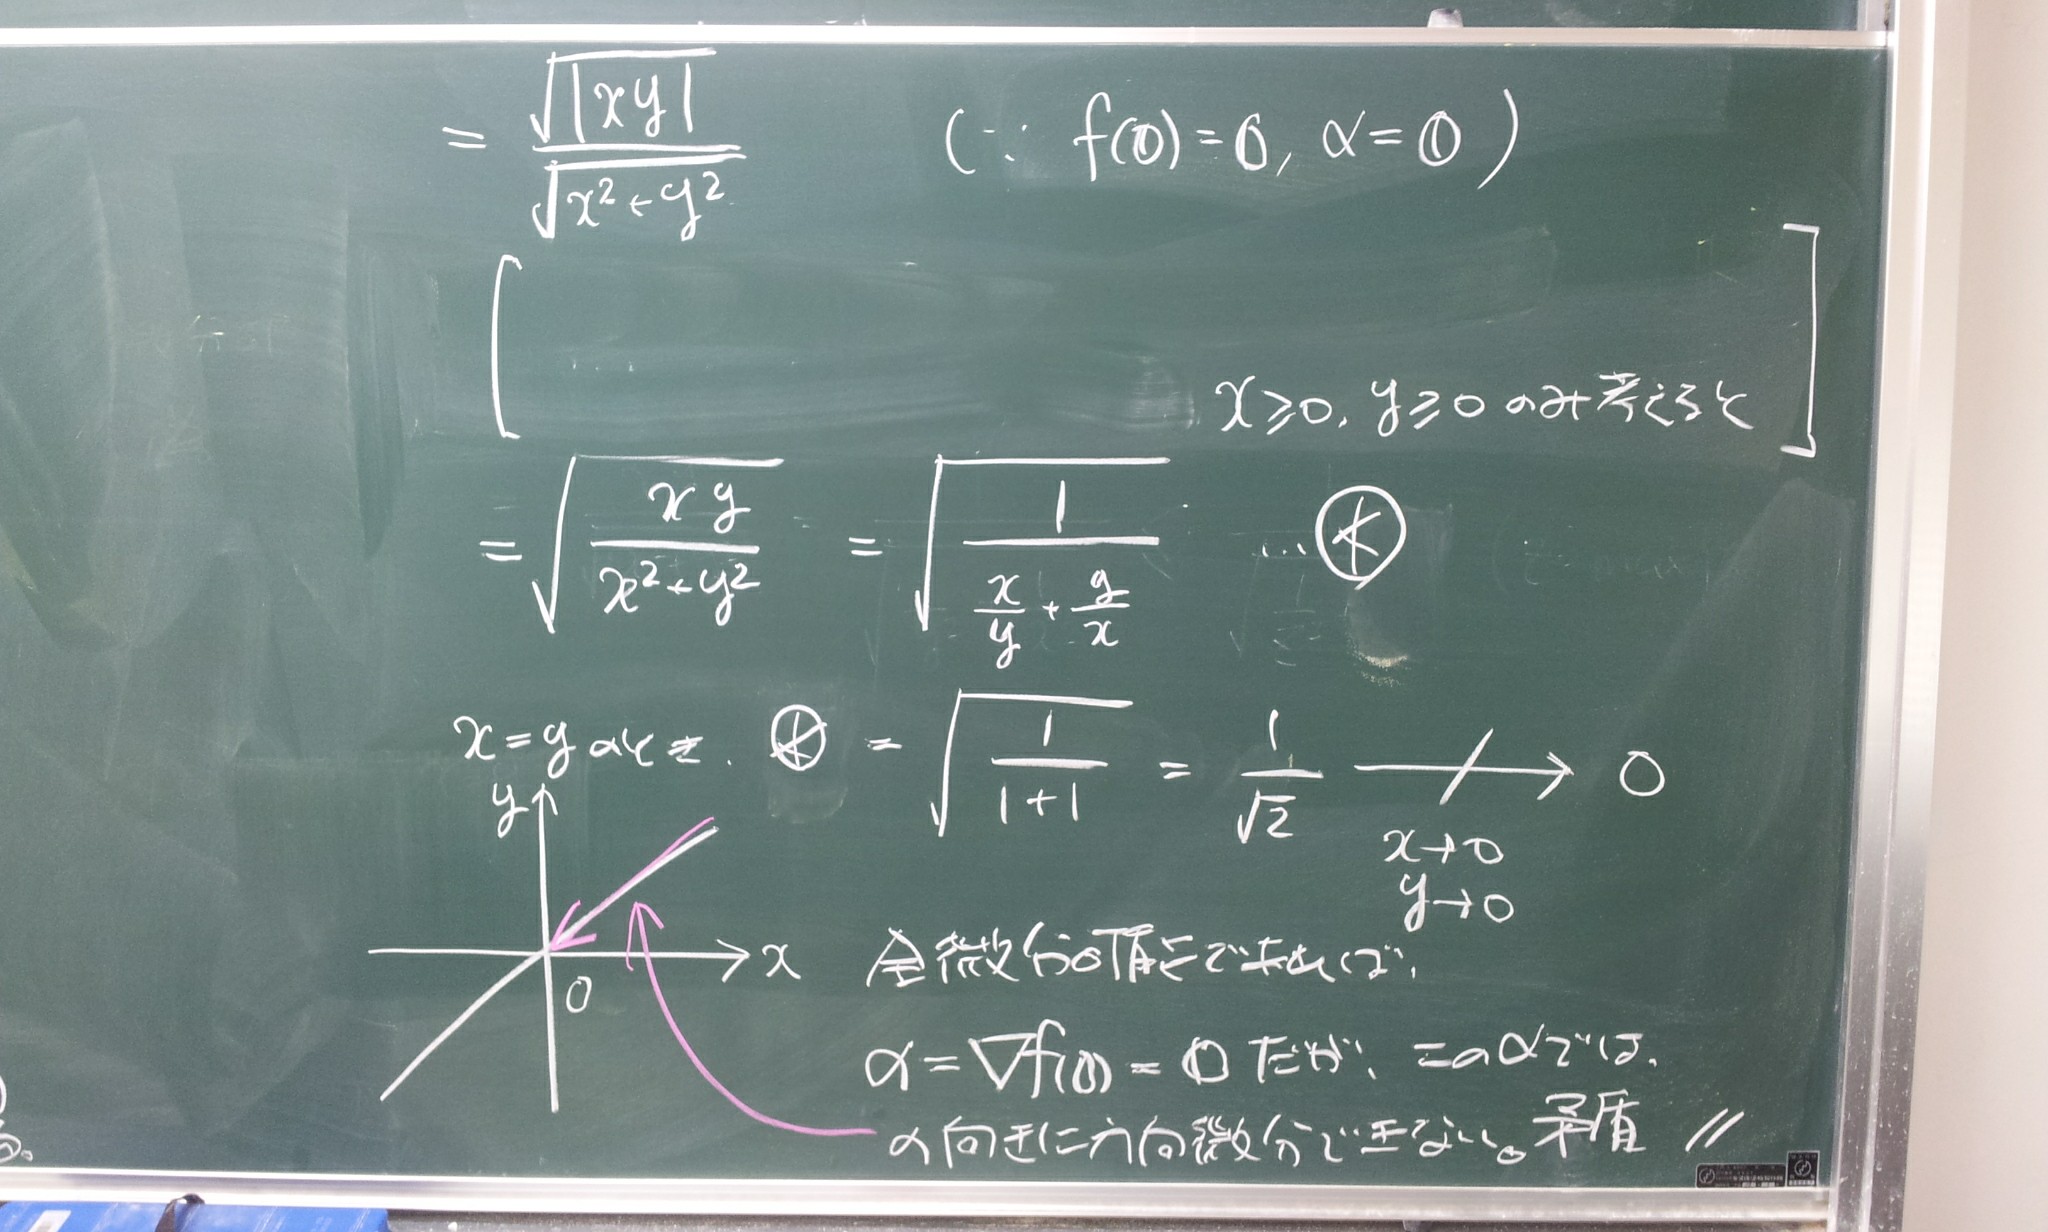 = √|xy| / √x²+y² (∵ f(0)=0, α=0)
[ x≥0, y≥0 のみ考えると ]
= √(xy / x²+y²) = √(1 / (x/y + y/x)) … ⊛
x=yのとき. ⊛ = √(1 / 1+1) = 1/√2 ↛ 0
x→0
y→0
y
x
0
全微分0頂点で
α=∇f(0)=0だが、このαでは、
の向きに方向微分できない。矛盾 //
る。